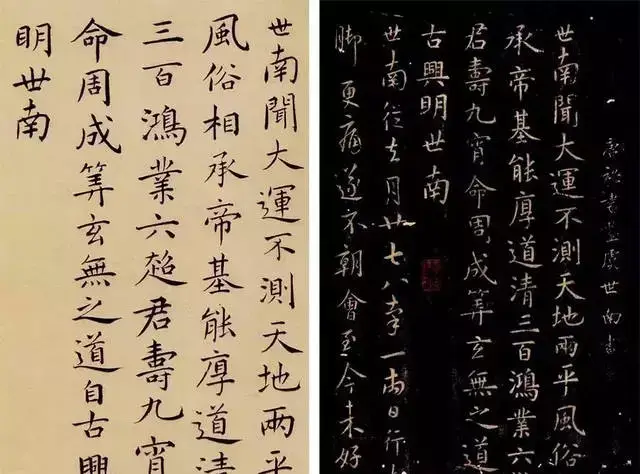 世南聞大運不測天地兩平
風俗相承帝基能厚道清
三百鴻業六超君壽九宵
命周成筭玄無之道自古興
明世南
世南聞大運不測天地兩平風俗
承帝基能厚道清三百鴻業六
君壽九宵命周成筭玄無之道
古興明世南
世南從去月廿七八率一兩日行
腳更痛遂不朝會至今未好
書監虞世南書